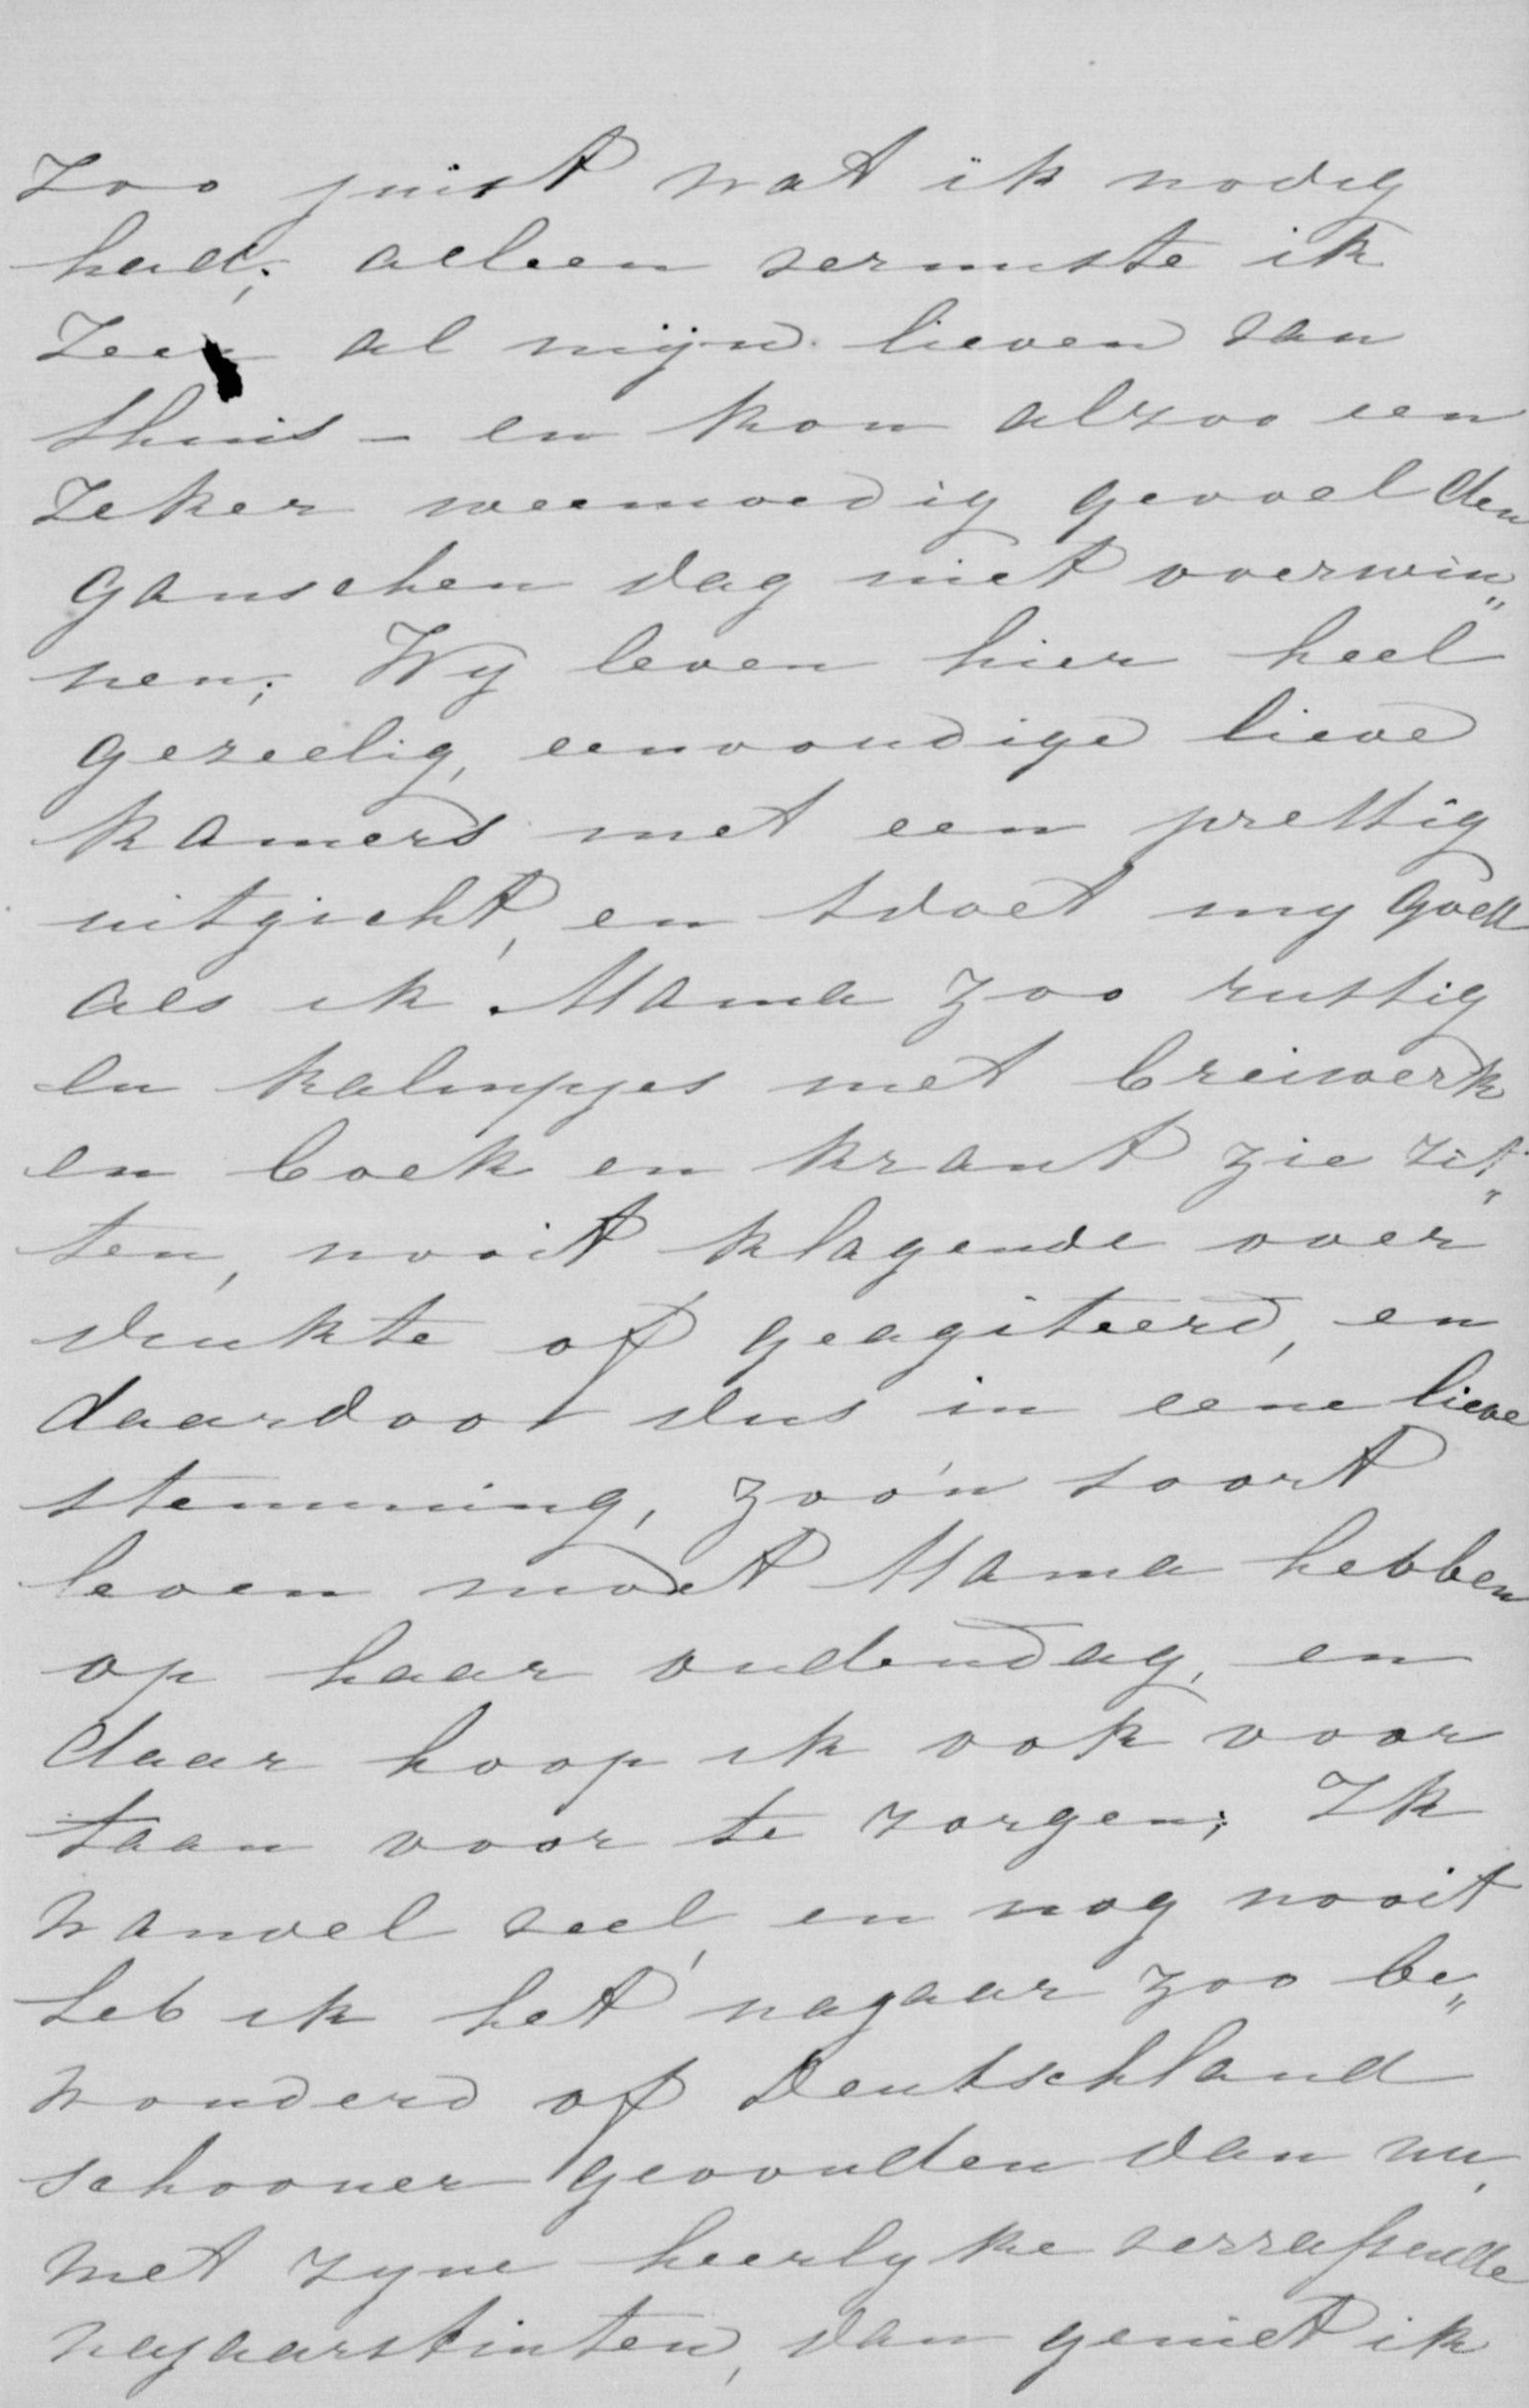 zoo juist wat ik nodig
had; alleen vermiste ik
Zeer al mijn lieven van
thuis – en kon alzoo een
Zeker weemoedig gevoel den
ganschen dag niet overwin„
nen; Wy leven hier heel
gezellig, eenvoudige lieve
kamers met een prettig
uitzicht, en tdoet my goed
als ik Mama zoo rustig
en kalmpjes met breiwerk
en boek en krant zie zit„
ten, nooit klagende over
drukte of geagiteerd, en
daardoor dus in eene lieve
stemming, zoo'n soort
leven moet Mama hebben
op haar oudendag, en
daar hoop ik ook voor
taan voor te zorgen; Ik
wandel veel, en nog nooit
heb ik het najaar zoo be„
wonderd of Deutschland
schooner gevonden dan nu,
met zyne heerlyke verrassende
najaarstinten, dan geniet ik